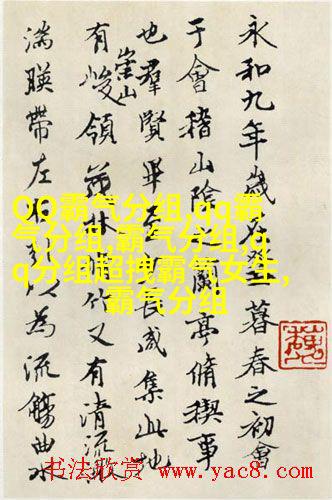 永和九年歲在癸丑暮春之初會
于會稽山陰之蘭亭脩稧事
也羣賢畢至少長咸集此地
有崇山峻領茂林脩竹又有清流激
湍暎帶左右引以為流觴曲水
QQ霸气分组,qq霸
气分组,霸气分组,q
q分组超拽霸气女生,
霸气分组
书法欣赏 www.yac8.com